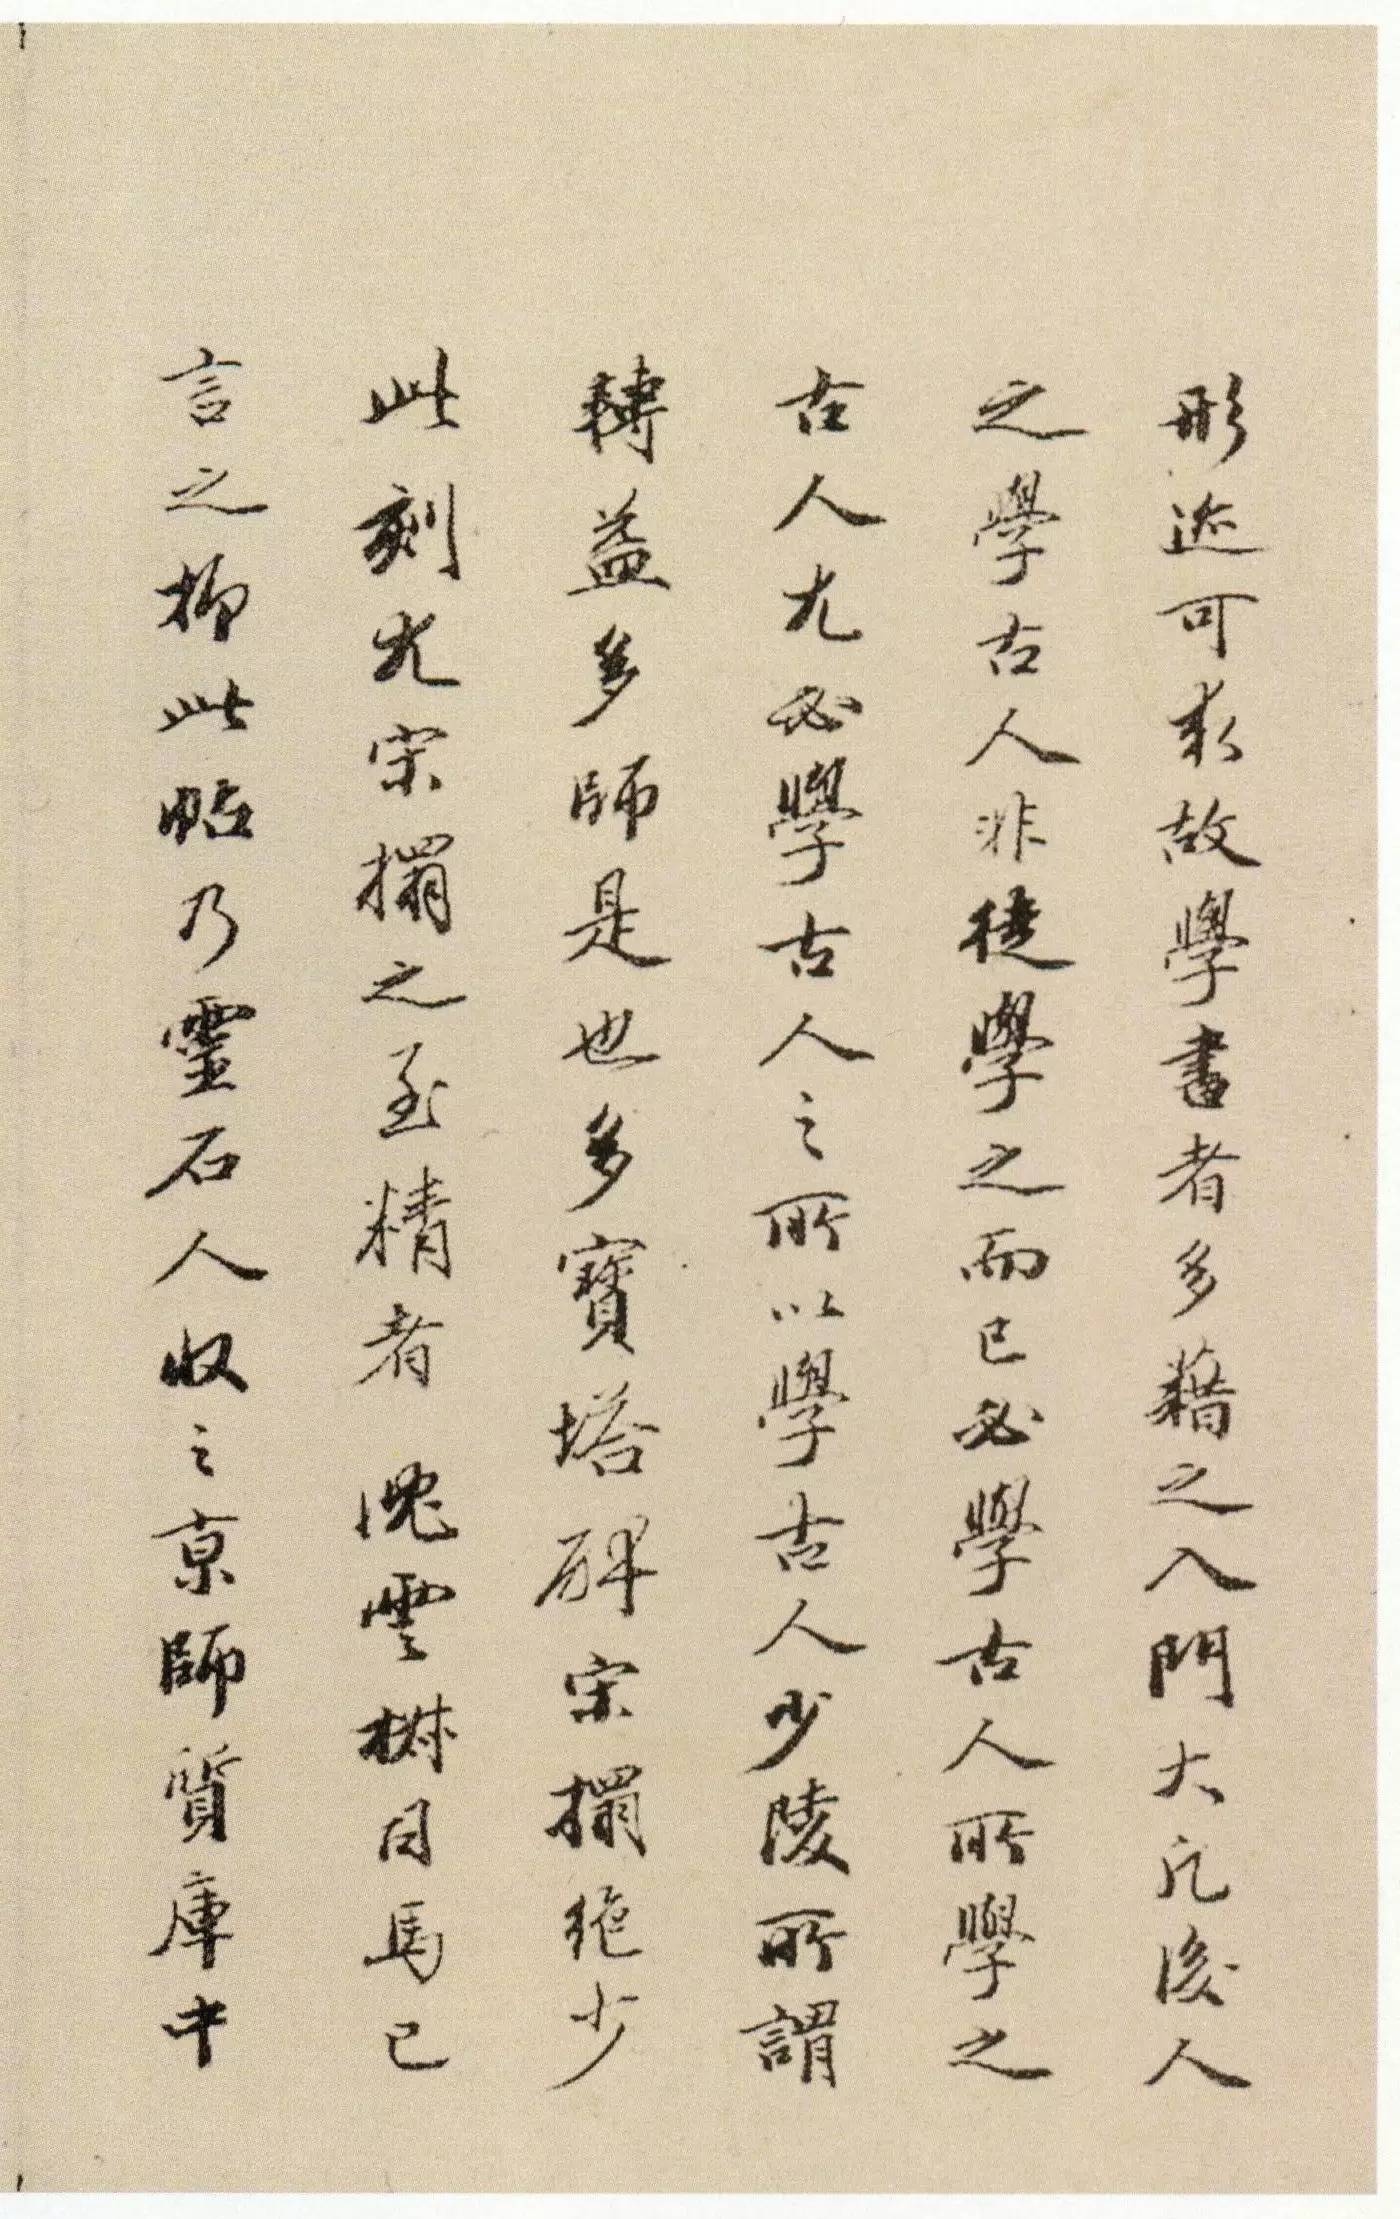 形迹可求故學書者多藉之入門大凡後人
之學古人非徒學之而已必學古人所學之
古人尤必學古人之所以學古人少陵所謂
轉益多師是也多寶塔碑宋搨絶少
此刻尤宋搨之至精者 沈雲樹司馬已
言之抑此帖乃靈石人收之京師質庫中